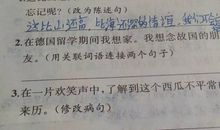 忘记呢？（改为陈述句）
这比山还高，比海还深的情谊，我们不会
2.在德国留学期间我想家。我想念故国的朋
友。（用关联词语连接两个句子）
3.在一片欢笑声中，了解到这个西瓜不平常的
来历。（修改病句）